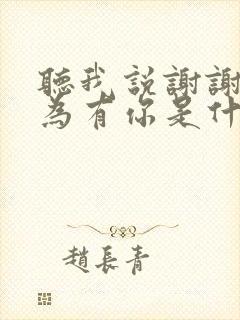 聽我説謝謝
為有你是什
趙長青